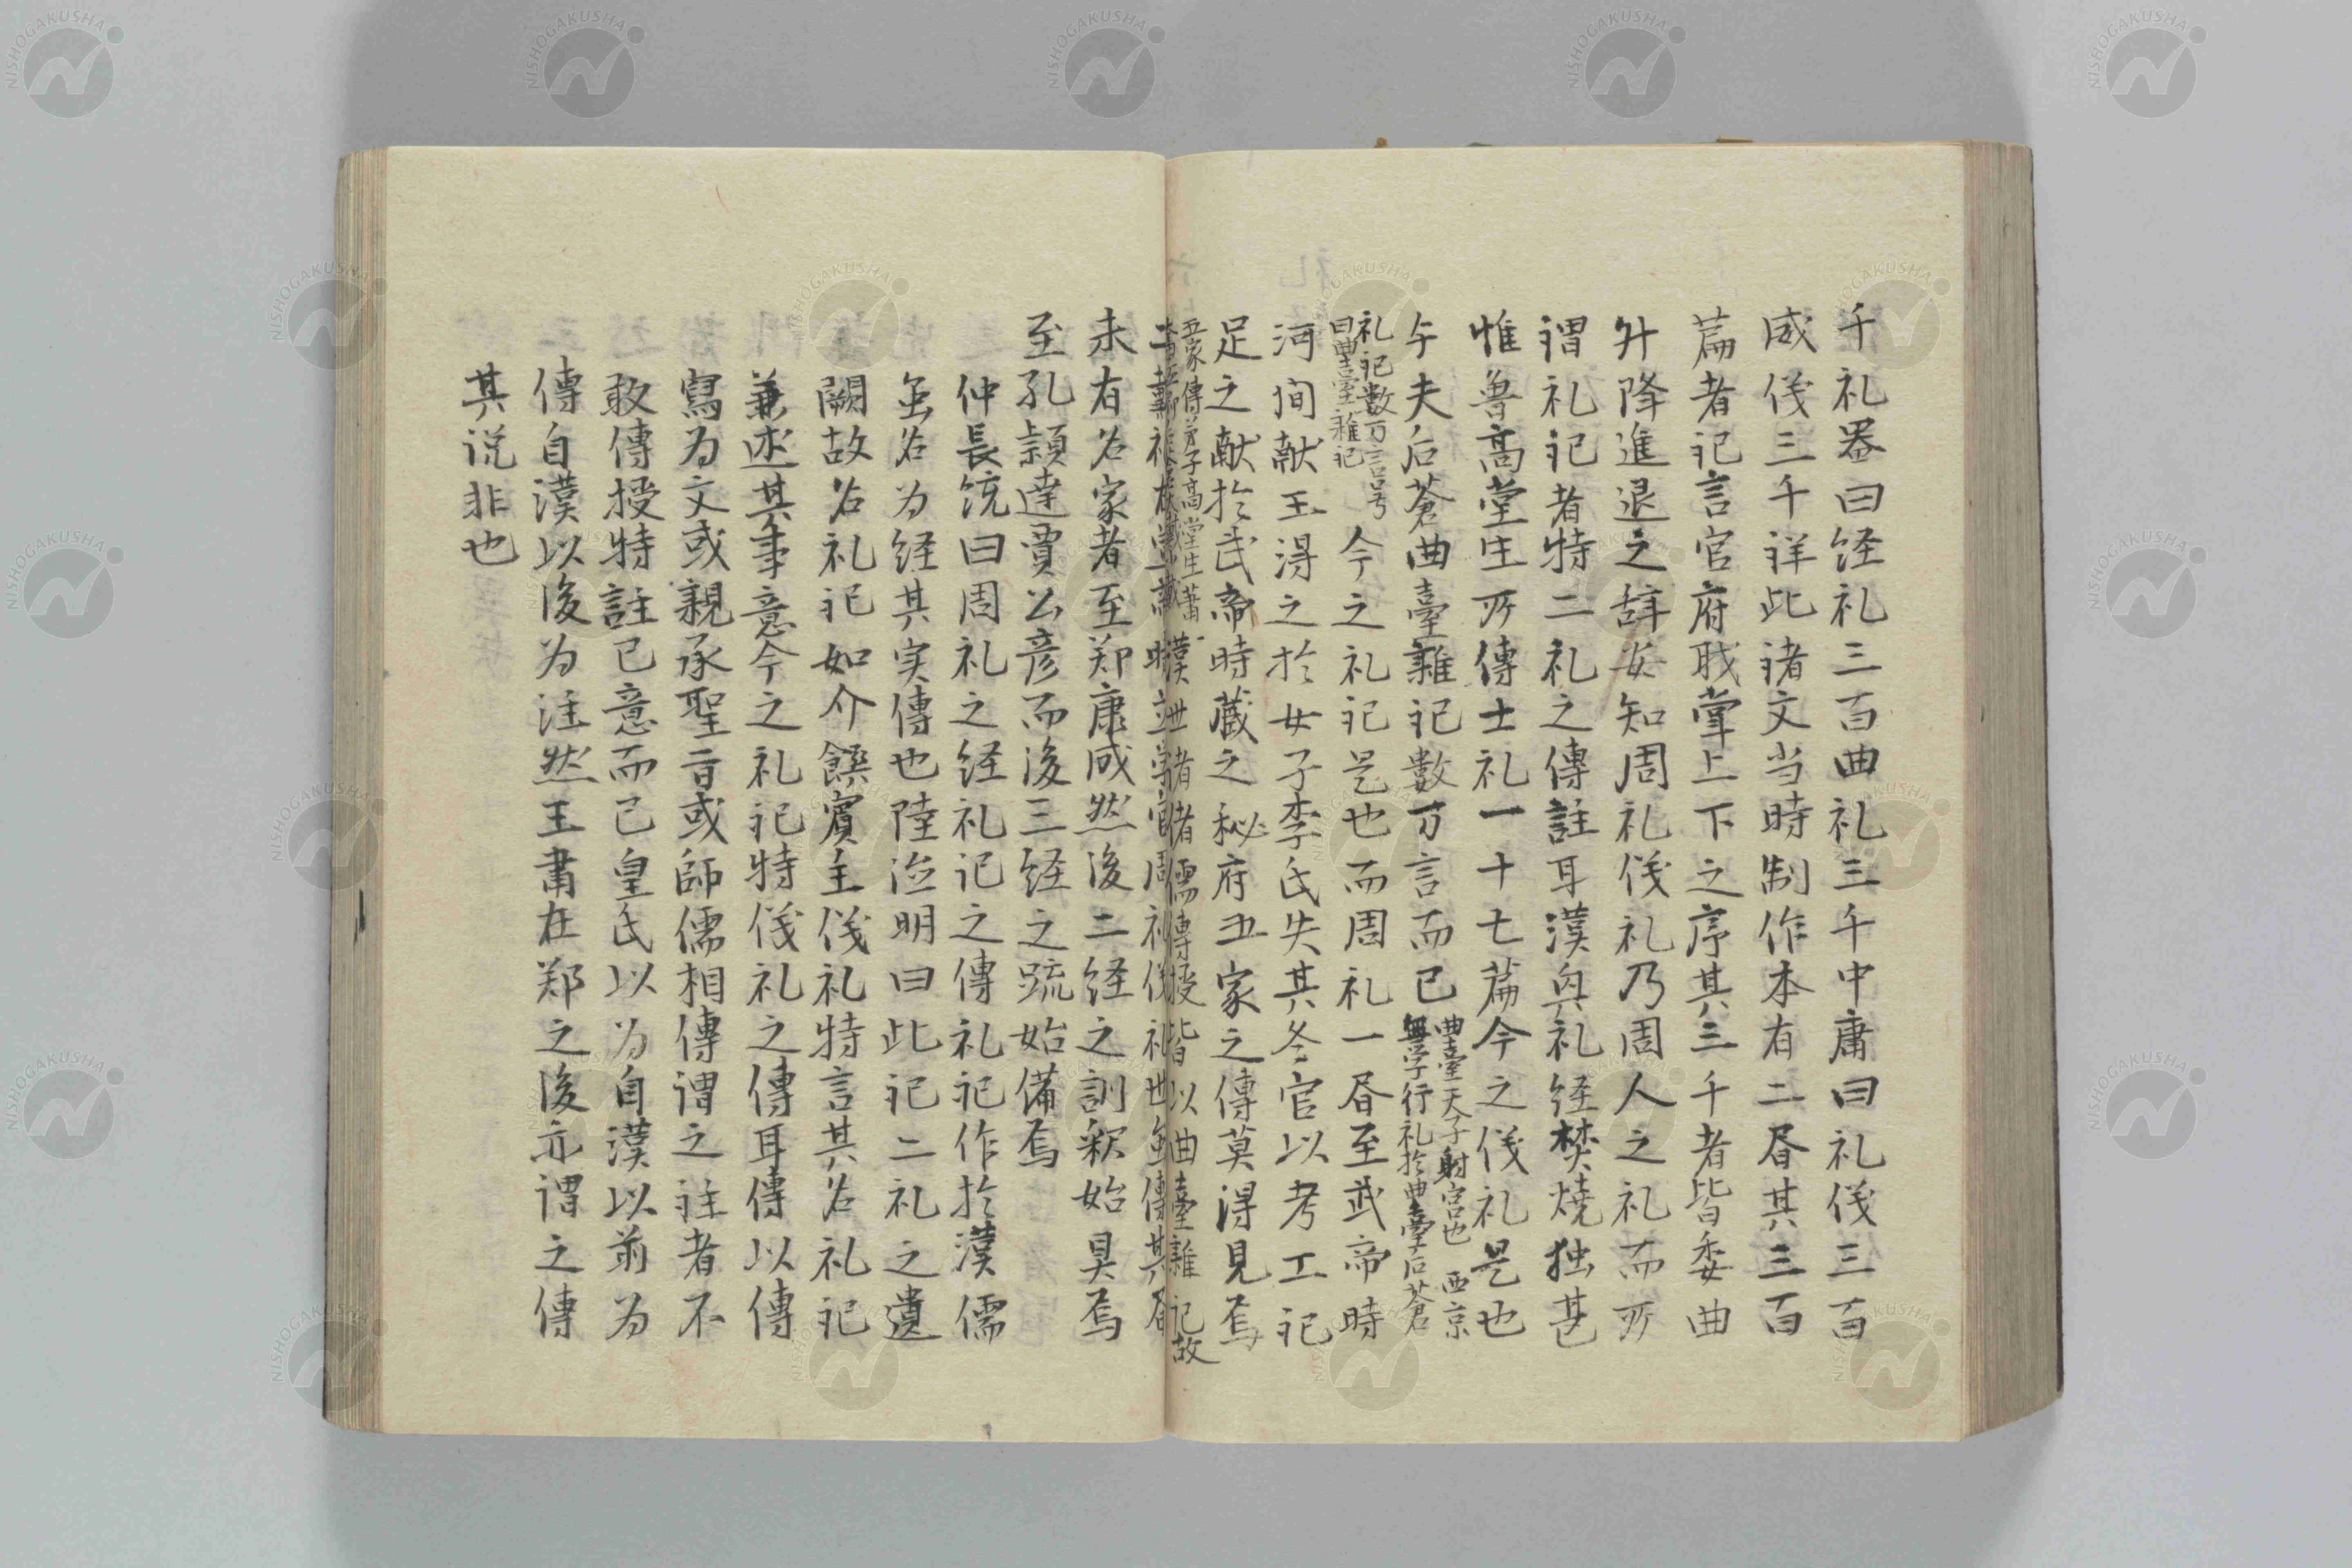 千礼器曰経礼三百曲礼三千中庸曰礼仪三百
威仪三千祥此诸文当時制作本有二昏其三百
萹者祀言官府职掌上下之序其三千者皆委曲
升降進退之辞安知周礼仪礼乃周人之礼而所
謂礼祀者特二礼之傳註耳漢興礼経焚燒独甚
惟鲁高堂生所傳士礼一十七萹今之仪礼是也
与夫后蒼曲臺雜祀數万言而已
曲臺天子射宮也 西京
無学行礼於曲臺后蒼
礼祀數万言号
曰曲臺雜祀
今之礼祀是也而周礼一昏至武帝時
河间献王得之於女子李氏失其冬官以考工祀
足之献於武帝時蔵之秘府五家之傳莫得見焉
五家傳弟子高堂生蕭
漢世諸儒傳授皆以曲臺雜记故
周礼仪礼世虽傳其昏
未有名家者至郑康成然後二経之訓釈始具焉
至孔頴達賈公彦而後三経之疏始備焉
仲長统曰周礼之経礼记之傳礼祀作於漢儒
虽名为経其实傳也陸淰明曰此祀二礼之遺
闕故名礼祀如介饌賓主仪礼特言其名礼祀
兼述其事意今之礼祀特仪礼之傳耳傳以傳
寫为文或親承聖旨或師儒相傳謂之註者不
敢傳授特註己意而已皇氏以为自漢以前为
傳自漢以後为注然王肃在郑之後亦謂之傳
其说非也